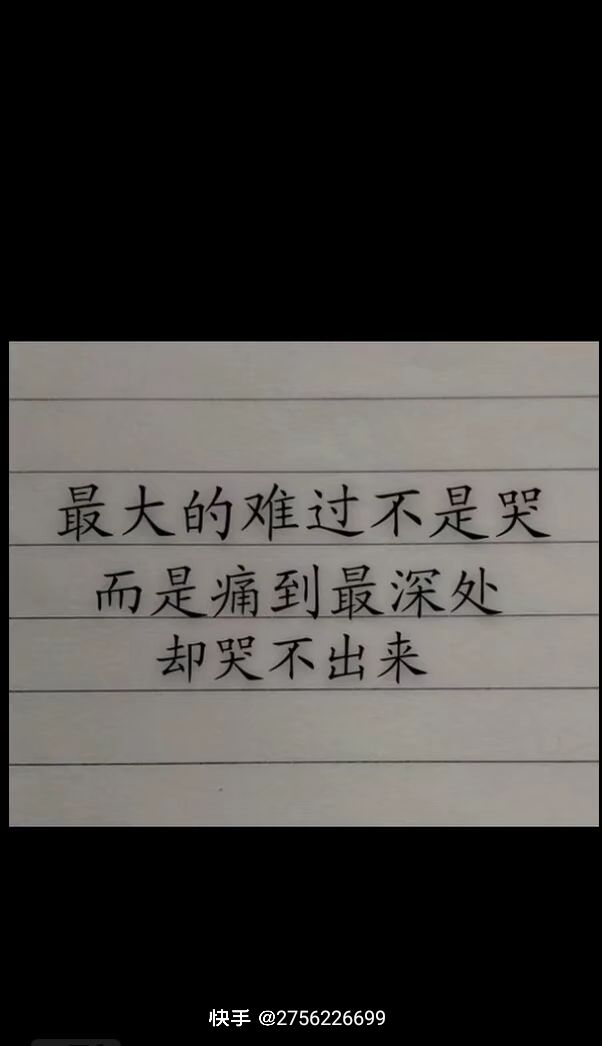 最大的难过不是哭
而是痛到最深处
却哭不出来
快手 @2756226699